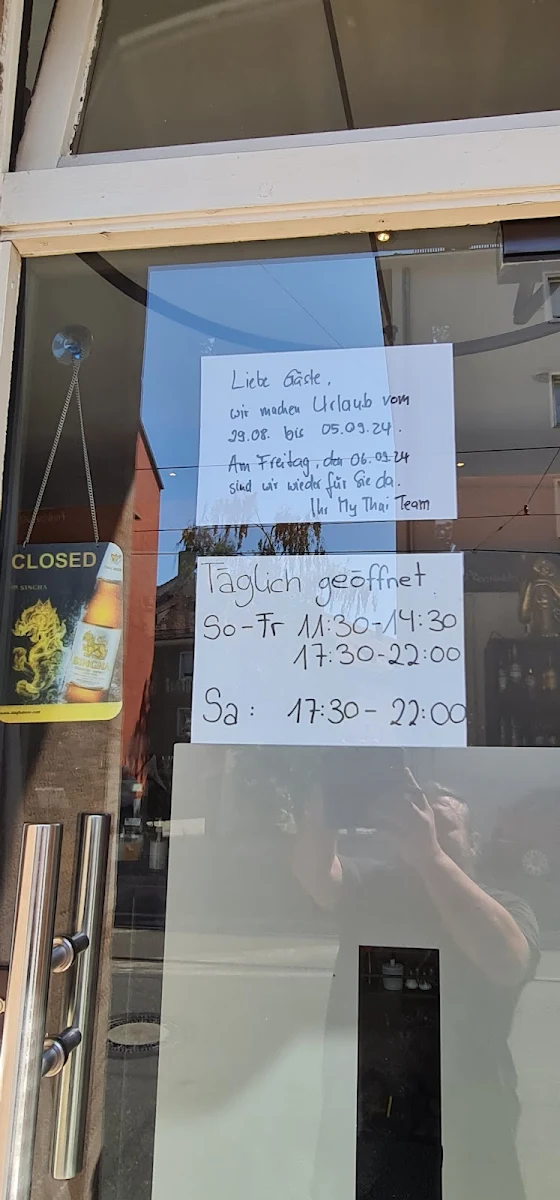 Liebe Gäste,
wir machen Urlaub vom
29.08. bis 05.09.24.
Am Freitag, den 06.09.24
sind wir wieder für Sie da.
Ihr My Thai Team
CLOSED
SINGHA
SINGHA
Täglich geöffnet.
So-Fr 11:30-14:30
17:30-22:00
Sa: 17:30-22:00